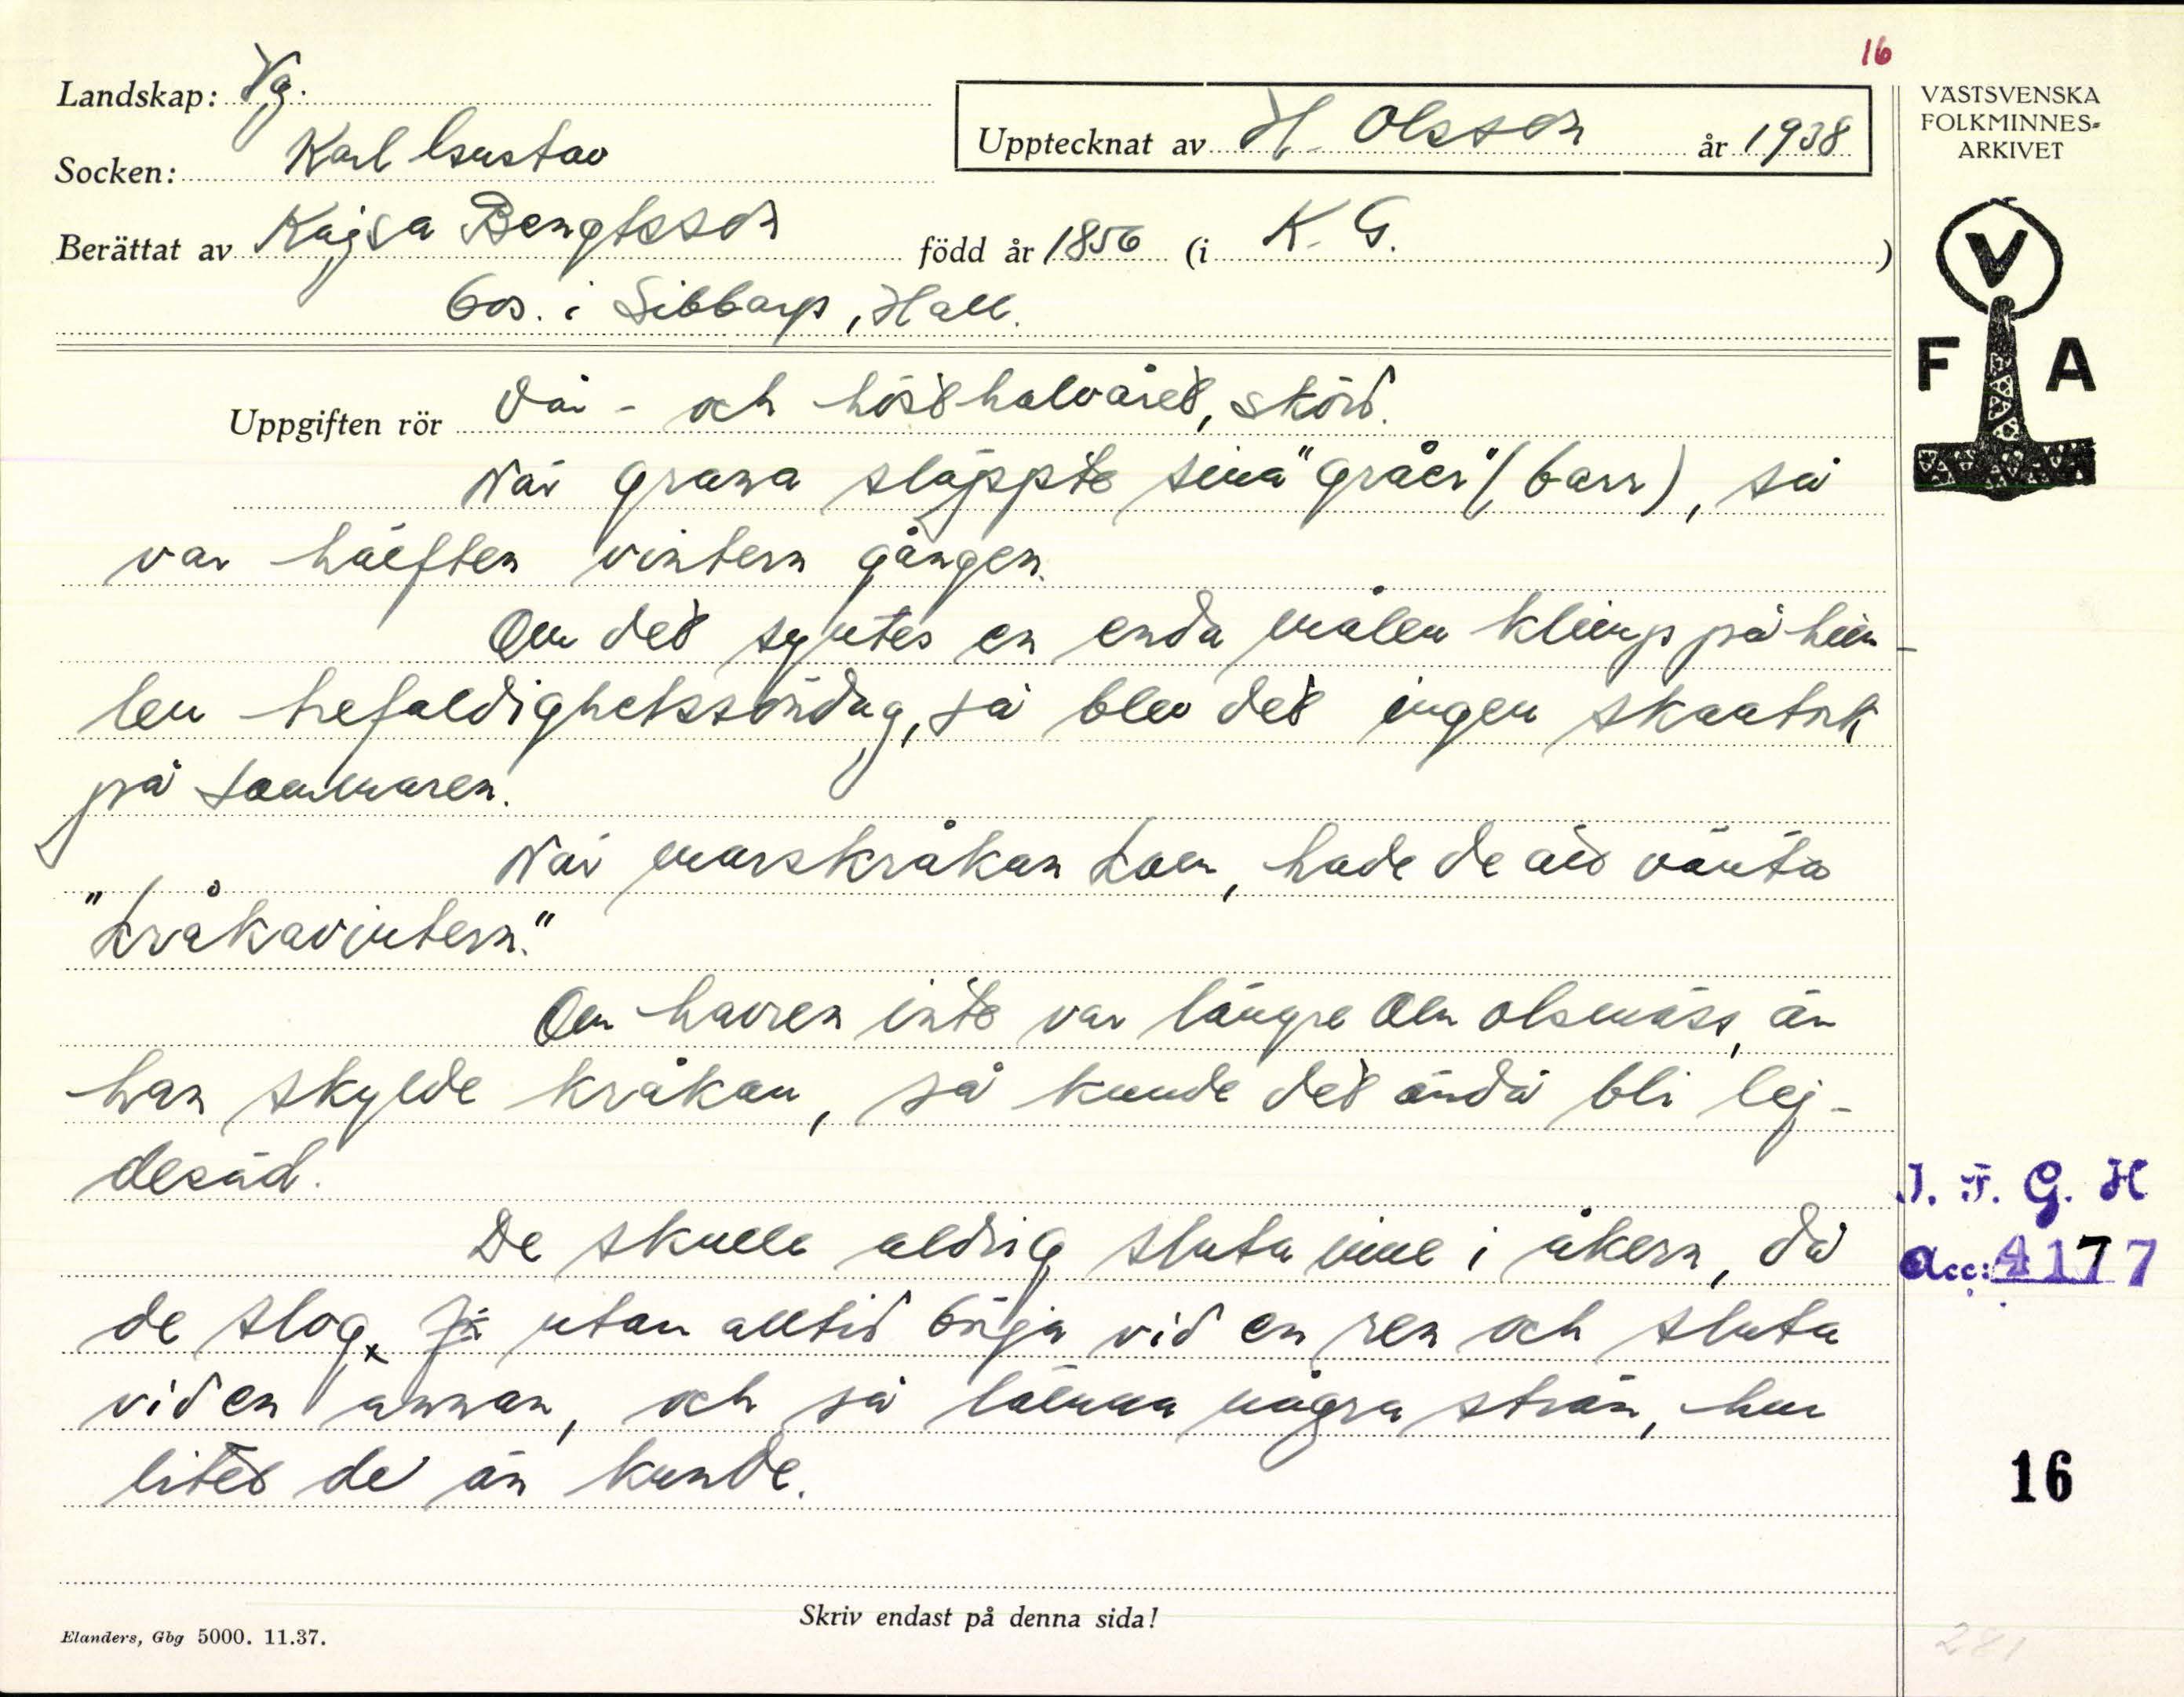 16
Landskap: Vg.
VÄSTSVENSKA
FOLKMINNES-
ARKIVET
Upptecknat av H. Olsson år 1938
Socken: Karl Gustav
Berättat av Kajsa Bengtsson född år 1856 (i K. G.)
bos. i Sibbarp, Hall.
V
F A
Uppgiften rör Vår- och hösthalvåret, skörd.
När grana släppte sina "gråer" (barr), så
var hälften vintern gången.
Om det syntes en enda målen klimp på him-
len trefaldighetssöndag, så blev det ingen
på sommaren.
När marskråkan kom, hade de att vänta
"kråkavintern."
Om havren inte var längre om olsmäss, än
han skylde kråkan, så kunde det ändå bli lej-
desäd.
De skulle aldrig sluta inne i åkern, då
de slog, utan alltid börja vid en ren och sluta
vid en annan, och så lämna några strån, hur
litet de än kunde.
I. F. G. H
Acc: 4177
16
Skriv endast på denna sida!
Elanders, Gbg 5000. 11.37.
281